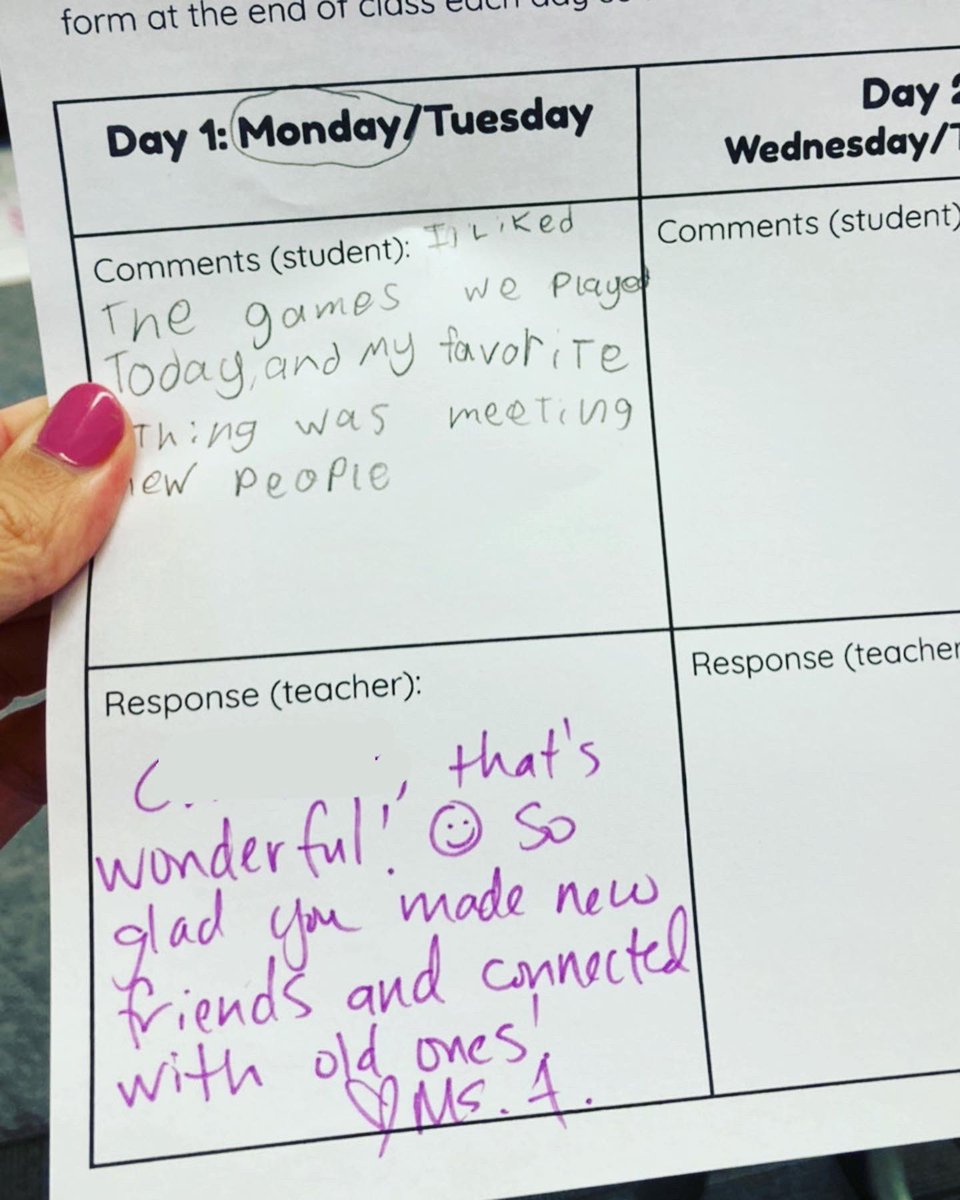 form at the end of class each day
Day 1: Monday/Tuesday
Comments (student): I liked
The games we played
Today, and my favorite
thing was meeting
new people
Response (teacher):
C. , that's
wonderful! ☺ So
glad you made new
friends and connected
with old ones!
♡ Ms. A.
Day 2
Wednesday/T
Comments (student)
Response (teacher